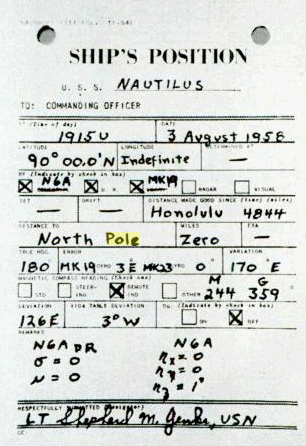 SHIP'S POSITION
U. S. S. NAUTILUS
TO: COMMANDING OFFICER
AT (Time of day) DATE
1915U 3 August 1958
LATITUDE LONGITUDE DETERMINED AT
90° 00.0'N Indefinite —
BY (Indicate by check in box)
N6A D. R. MK19 RADAR VISUAL
SET DRIFT DISTANCE MADE GOOD SINCE (time) (miles)
— — Honolulu 4844
DISTANCE TO MILES ETA
North Pole Zero —
TRUE HDG. ERROR VARIATION
180 MK19 GYRO 3 E MK23 GYRO 0° 170° E
MAGNETIC COMPASS HEADING (Check one) M G
STD STEERING REMOTE IND OTHER 244 359°
DEVIATION 1104 TABLE DEVIATION DG: (Indicate by check in box)
126E 3°W ON OFF
REMARKS
N6A DR N6A
σ = 0 nx = 0
μ = 0 ny = 0
nz = 1°
RESPECTFULLY SUBMITTED
LT Shepherd M. Jenks, USN
CC: